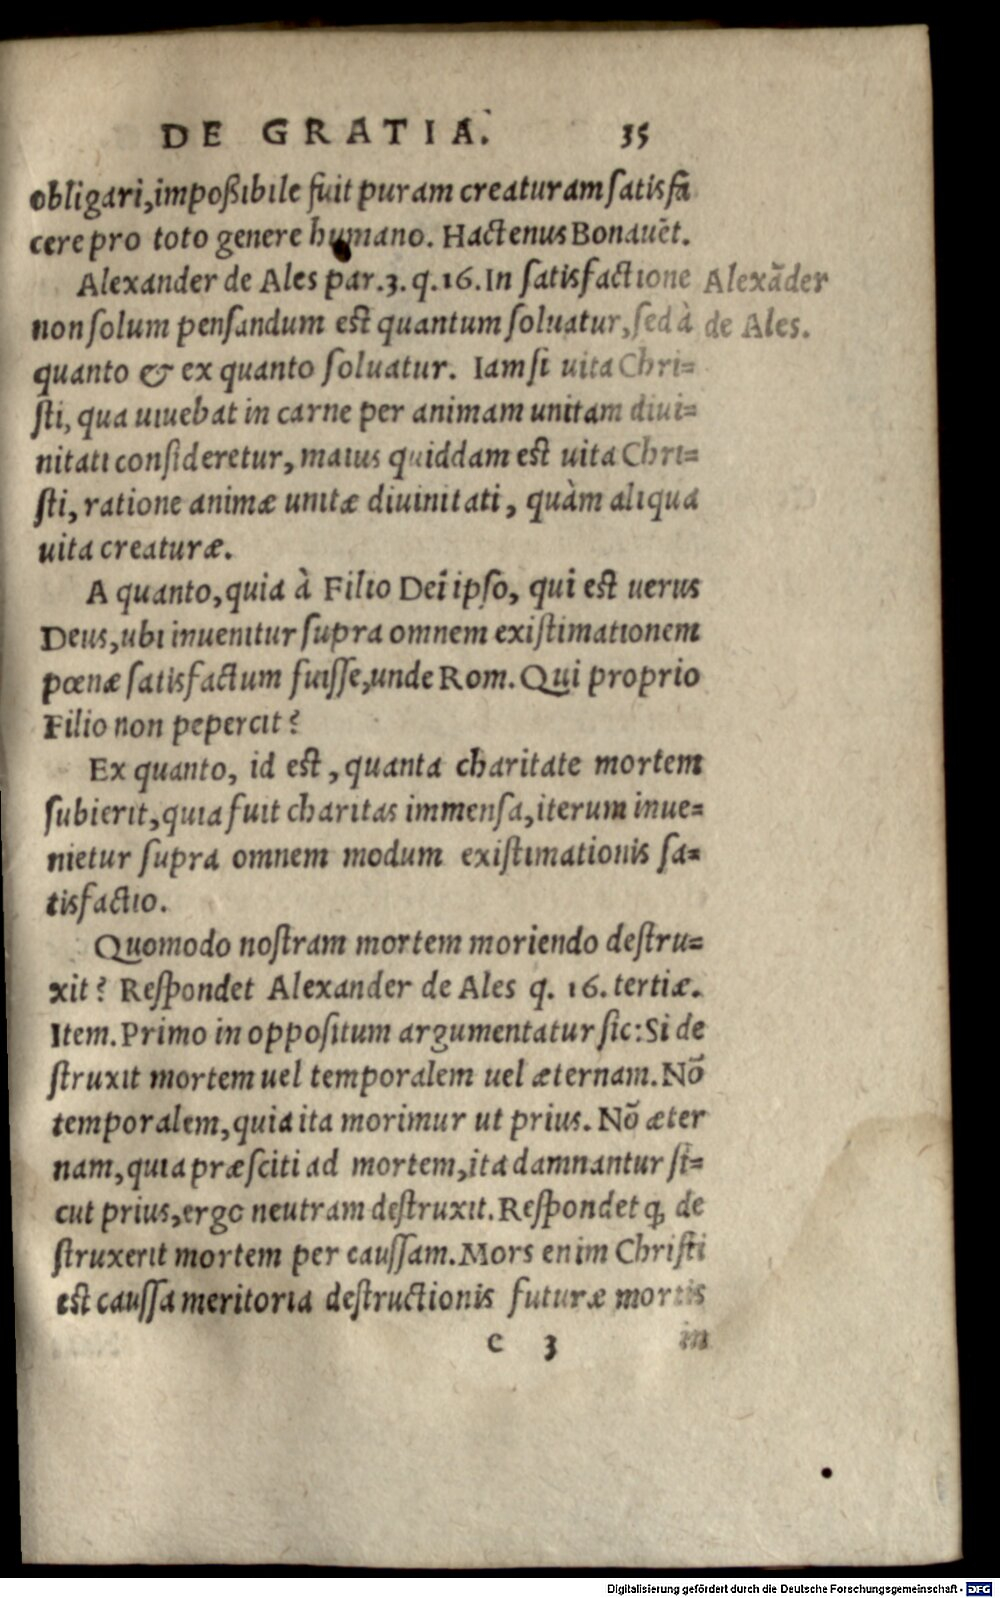 DE GRATIA. 35
obligari, impoßibile fuit puram creaturam satisfa
cere pro toto genere humano. Hactenus Bonauēt.
Alexander de Ales par. 3. q. 16. In satisfactione
Alexāder
non solum pensandum est quantum soluatur, sed à
de Ales.
quanto & ex quanto soluatur. Iam si uita Chri=
sti, qua uiuebat in carne per animam unitam diui=
nitati consideretur, maius quiddam est uita Chri=
sti, ratione animæ unitæ diuinitati, quàm aliqua
uita creaturæ.
A quanto, quia à Filio Dei ipso, qui est uerus
Deus, ubi inuenitur supra omnem existimationem
pœnæ satisfactum fuisse, unde Rom. Qui proprio
Filio non pepercit?
Ex quanto, id est, quanta charitate mortem
subierit, quia fuit charitas immensa, iterum inue=
nietur supra omnem modum existimationis sa=
tisfactio.
Quomodo nostram mortem moriendo destru=
xit? Respondet Alexander de Ales q. 16. tertiæ.
Item. Primo in oppositum argumentatur sic: Si de
struxit mortem uel temporalem uel æternam. Nō
temporalem, quia ita morimur ut prius. Nō æter
nam, quia præsciti ad mortem, ita damnantur si=
cut prius, ergo neutram destruxit. Respondet ꝙ de
struxerit mortem per caussam. Mors enim Christi
est caussa meritoria destructionis futuræ mortis
c 3 in
Digitalisierung gefördert durch die Deutsche Forschungsgemeinschaft - DFG